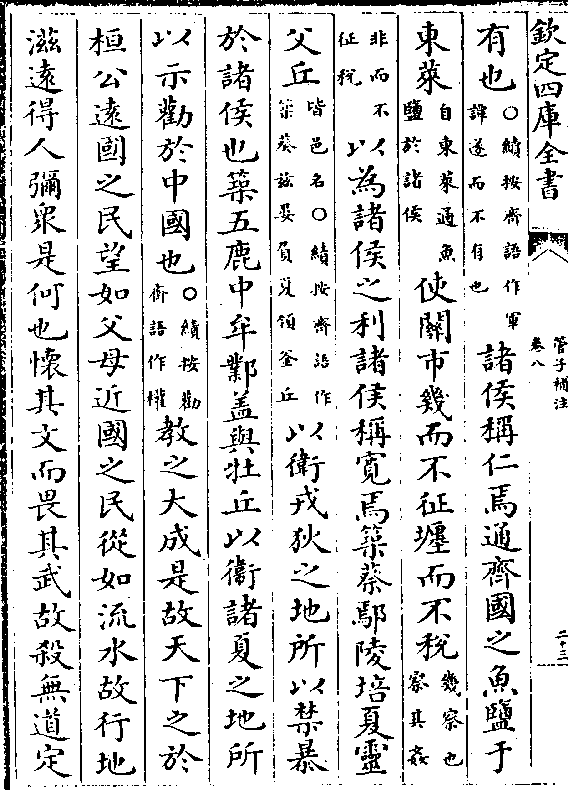 欽定四庫全書
管子補注
卷八
二十三
有也○績按齊語作軍譚遂而不有也諸侯稱仁焉通齊國之魚鹽于
東萊自東萊通魚鹽於諸侯使關市幾而不征壥而不税幾察也察其姦
非而不征税以為諸侯之利諸侯稱寛焉築蔡鄢陵培夏靈
父丘皆邑名○績按齊語作築葵兹晏負夏領釜丘以衛戎狄之地所以禁暴
於諸侯也築五鹿中牟鄴盖與牡丘以衛諸夏之地所
以示勸於中國也○績按勸齊語作權教之大成是故天下之於
桓公遠國之民望如父母近國之民從如流水故行地
滋遠得人彌衆是何也懷其文而畏其武故殺無道定